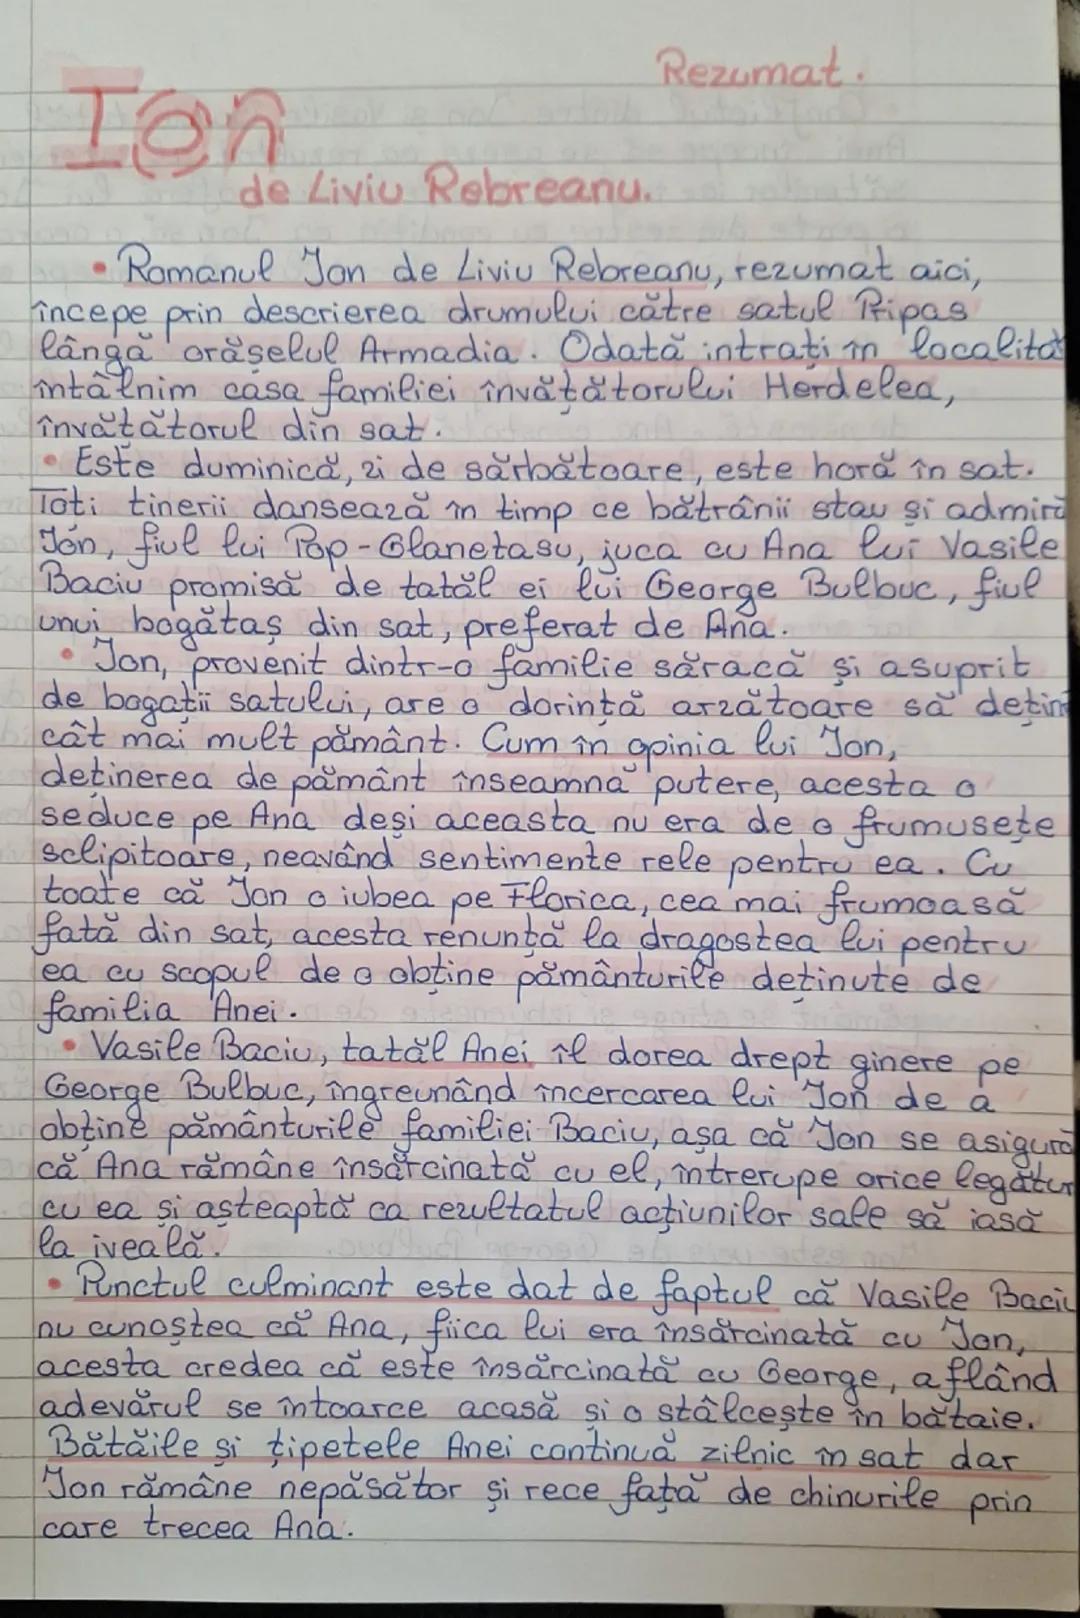 Rezumat.
Ion
de Liviu Rebreanu.
• Romanul Ion de Liviu Rebreanu, rezumat aici,
începe prin descrierea drumului către satul Pripas
lângă orășelul Armadia. Odată intrați în localita
întâlnim casa familiei învățătorului Herdelea,
învățătorul din sat.
• Este duminică, zi de sărbătoare, este horă în sat.
Toți tinerii dansează în timp ce bătrânii stau și admiră
Ion, fiul lui Pop-Glanetasu, juca cu Ana lui Vasile
Baciu promisă de tatăl ei lui George Bulbuc, fiul
unui bogătaș din sat, preferat de Ana.
• Ion, provenit dintr-o familie săracă și asuprit
de bogații satului, are o dorință arzătoare să dețin
cât mai mult pământ. Cum în opinia lui Ion,
deținerea de pământ înseamnă putere, acesta o
seduce pe Ana deși aceasta nu era de o frumusețe
sclipitoare, neavând sentimente rele pentru ea. Cu
toate că Ion o iubea pe Florica, cea mai frumoasă
fată din sat, acesta renunță la dragostea lui pentru
ea cu scopul de a obține pământurile deținute de
familia Anei.
• Vasile Baciu, tatăl Anei îl dorea drept ginere pe
George Bulbuc, îngreunând încercarea lui Ion de a
obține pământurile familiei Baciu, așa că Ion se asigură
că Ana rămâne însărcinată cu el, întrerupe orice legătur
cu ea și așteaptă ca rezultatul acțiunilor sale să iasă
la iveală.
• Punctul culminant este dat de faptul că Vasile Baciu
nu cunoștea că Ana, fiica lui era însărcinată cu Ion,
acesta credea că este însărcinată cu George, aflând
adevărul se întoarce acasă și o stâlcește în bătaie.
Bătăile și țipetele Anei continuă zilnic în sat dar
Ion rămâne nepăsător și rece față de chinurile prin
care trecea Ana.